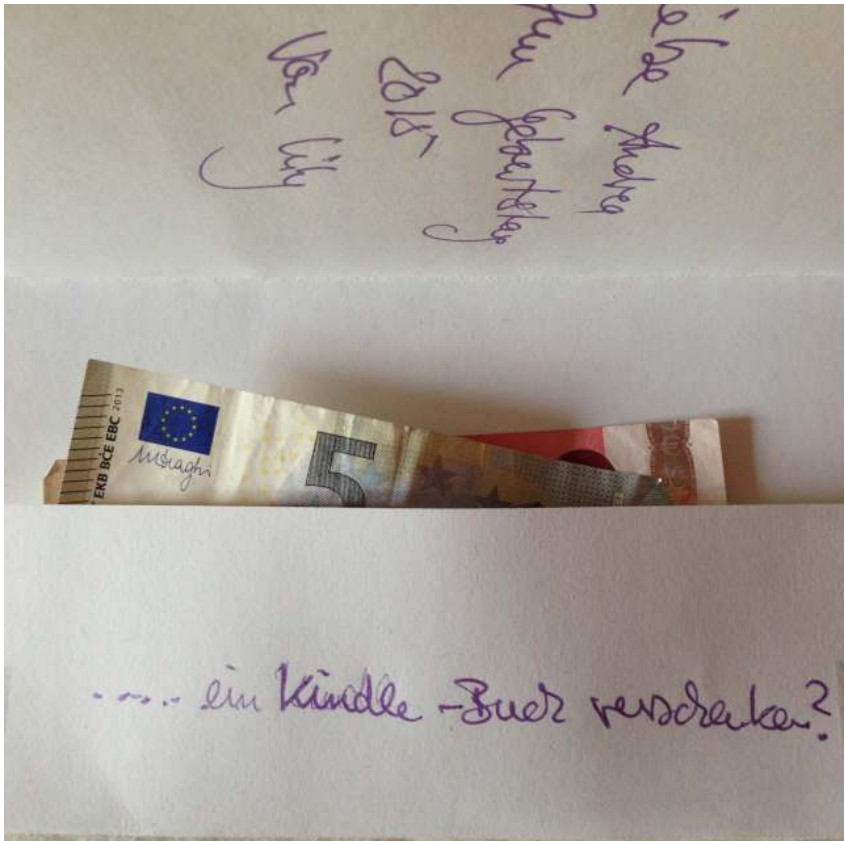 Liebe Andrea
Zum Geburtstag
2015
Von Lily
EKB BCE EBC 2013
MDraghi
5
..... ein Kindle-Buch verschenken?